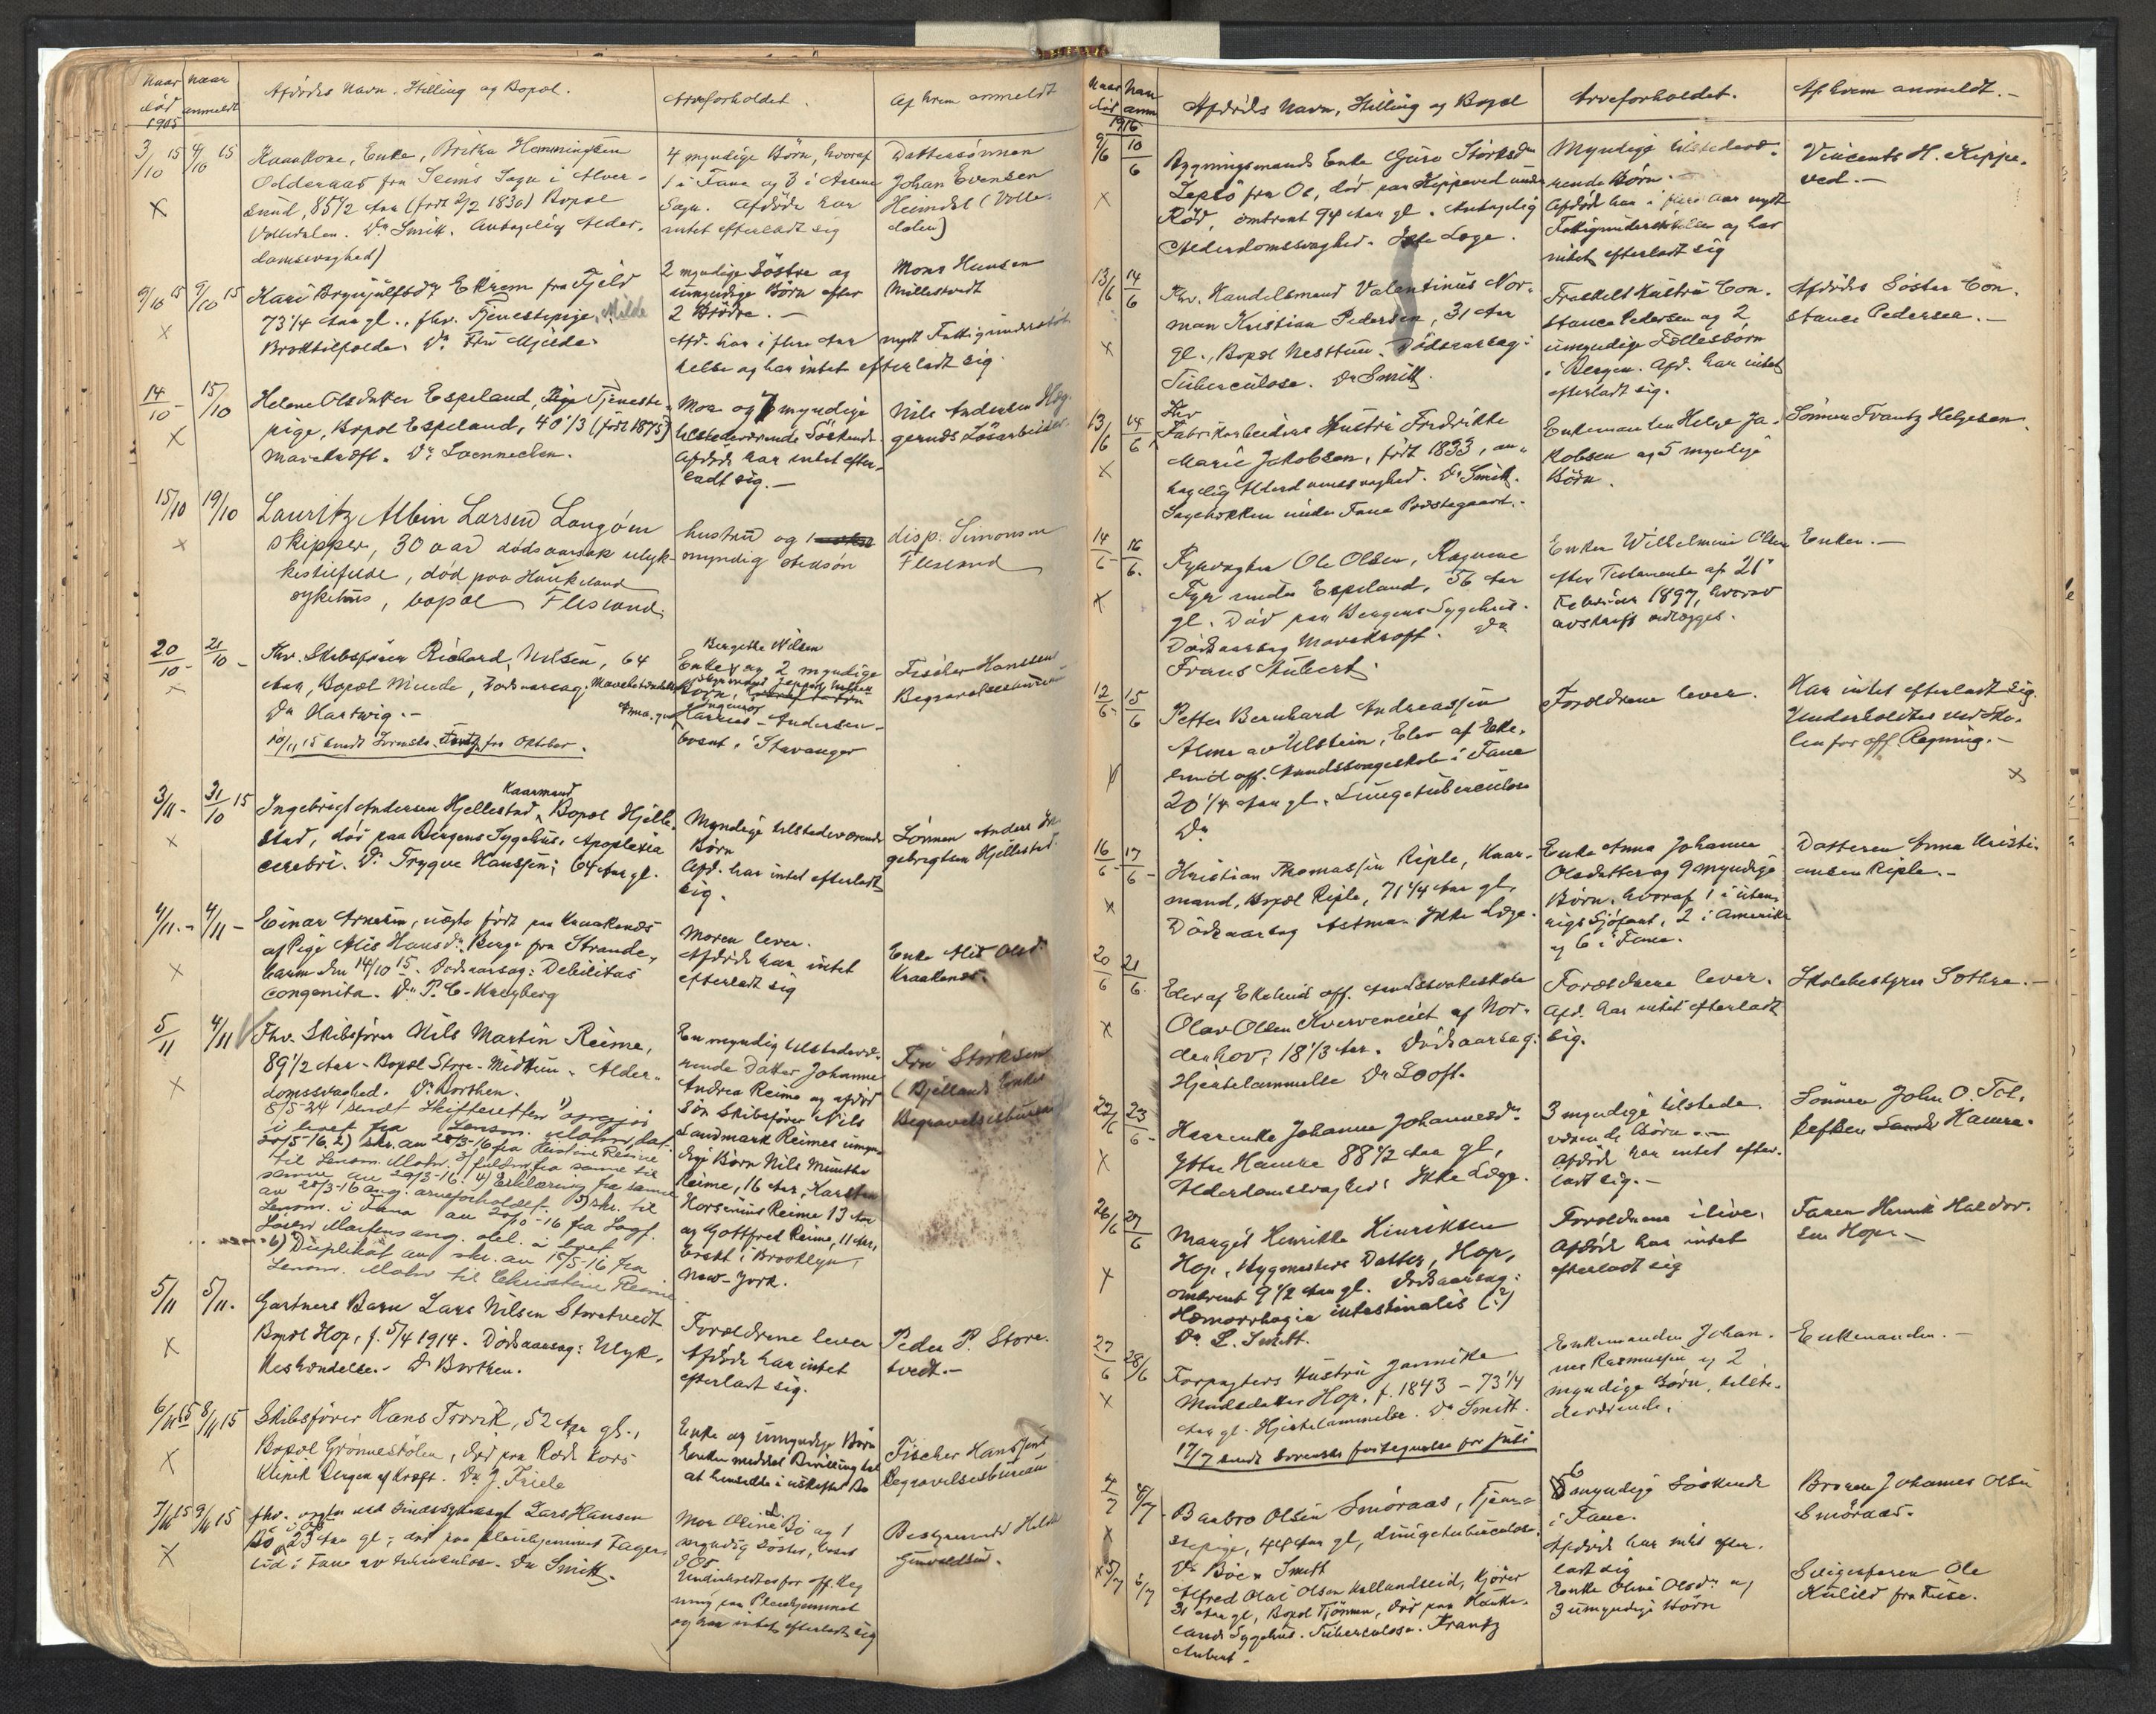 Naar Naar
død anmeldt
1915
Afdødes Navn. Stilling og Bopæl.
Arveforholdet.
Af hvem anmeldt
3/10 15 4/10 15
Kaarkone, Enke, Britha Hemmingsen
Odderaas fra Seims Sogn i Alver-
sund, 85 1/2 Aar (født 2/2 1830) Bopæl
Dr Smitt. antagelig Alder-
domssvaghed)
4 myndige Børn, hvoraf
1 i Fana og 3 i
Sogn. Afdøde har
intet efterladt sig
Dattersønnen
Johan Evensen
Heimdal (
dalen)
9/10 15 9/10 15
Kari Brynjulfsdr Ekrem fra Fjeld
73 1/4 Aar gl., fhv. Tjenestepige, Milde
Broktilfælde. Dr
2 myndige Søstre og
umyndige Børn efter
2 Brødre. -
Afd. har i flere Aar nydt Fattigunderstøt
telse og har intet efterladt sig
Mons Hansen
14/10 - 15/10
Helene Olsdatter Espeland, Tjeneste-
pige, Bopæl Espeland, 40 1/3 (født 1875)
Mavekræft. Dr Loennechen.
Mor og 7 myndige
tilstedeværende Søskende
Afdøde har intet efter-
ladt sig. -
Nils Andersen Hög-
15/10 19/10
Lauritz Albin Larsen Langöen
skipper, 30 aar dødsaarsak ulyk-
kestilfelde, død paa Haukeland
sykehus, bopæl Flesland
hustru og 1
myndig
disp. Simonsen
Flesland
20/10 - 21/10 -
Fhv. Skibsfører Richard Nilsen, 64
Aar, Bopæl Minde, Dødsaarsag:
Dr Hartwig. -
10/11 15 sendt for Oktober.
Bergitte Nilsen
Enke og 2 myndige
Børn,
Andersen -
bosat i Stavanger
Fischer Hanssen
Begravelsesbureau
3/11 - 31/10 15
Kaarmand
Ingebrigt Andersen Hjellestad, Bopæl Hjelle-
stad, død paa Bergens Sygehus. Apoplexia
cerebri. Dr Trygve Hanssen; 64 Aar gl.
Myndige tilstedeværende
Børn
Afd. har intet efterladt
sig.
Sönnen Anders In-
gebrigtsen Hjellestad.
4/11. - 4/11 -
Einar Arnesen, uægte født paa Kraakenæs
af Pige Alis Hansdr Berge fra Strande-
barm den 14/10 15. Dødsaarsag: Debilitas
congenita. Dr P. C. Kreyberg
Moren lever.
Afdøde har intet
efterladt sig
Enke Olsd.
Kraakenes.
5/11 4/11
Fhv. Skibsfører Nils Martin Reime,
89 1/2 Aar - Bopæl Store-Midtun - Alder-
domssvaghed. Dr Borthen.
8/5-24 sendt Skifteretten 1) opgjør
i boet fra Lensm. Mohn dat.
20/5-16. 2) skr. av 28/3-16 fra Kristine Reime
til Lensm. Mohn. 3) fuldm. fra samme til
samme av 20/3-16. 4) Erklæring fra samme
av 28/3-16 ang. arveforholdet. 5) skr. til
Lensm. i Fana av 20/10-16 fra Sagf.
Lauer Martens ang. i boet
6) Duplikat av skr. av 15/5-16 fra
Lensm. Mohn til Christine Reime
En myndig tilstedevæ-
rende Datter Johanne
Andrea Reime og afdød
Søn Skibsfører Nils
Landmark Reimes umyn-
dige Børn Nils Münthe
Reime, 16 Aar, Karsten
Horsenius Reime 13 Aar
og Gottfred Reime, 11 Aar,
bosat i Brooklyn,
New-York.
Fru Störksen
(Bjellands Enkes
Begravelsesbureau
5/11 5/11.
Gartners Barn Lars Nilsen Storetvedt
Bopæl Hop, f. 5/4 1914. Dødsaarsag: Ulyk-
keshændelse. - Dr Borthen.
Forældrene lever
Afdøde har intet
efterladt sig.
Peder P. Store-
tvedt. -
6/11 15 8/11 15
Skibsfører Hans Trovik, 52 Aar gl.,
Bopæl Grønnestølen, død paa Røde Kors
Klinik Bergen af Kræft. Dr J. Friele
Enke og umyndige Børn
Enken meddelt Bevilling til
at hensidde i uskiftet Bo
Fischer Hanssens
Begravelsesbureau
7/11 15 9/11 15
fhv. vogter ved Sindssykeasyl Lars Hansen
Bö, 23 Aar gl; død paa pleiehjemmet Fager-
lid i Fana av tuberkulose. Dr Smitt.
Mor Oline Bö og 1
myndig Søster, bosat
i Os
Underholdtes for off. Reg
ning paa Pleiehjemmet
og har intet efterladt sig
Bestyrerinde
Naar Naar
død anm
1916
Afdødes Navn, Stilling og Bopæl
Arveforholdet.
Af hvem anmeldt. -
9/6 10/6
Bygningsmands Enke Guro Störksdr
fra Os, død paa Kippeved under
Röd, omtrent 94 Aar gl. Antagelig
Alderdomssvaghed. Ikke Læge.
Myndige tilstedevæ-
rende Børn. -
Afdøde har i flere Aar nydt
Fattigunderstøttelse og har
intet efterladt sig
Vincents H. Kippe-
ved. -
13/6 14/6
Fhv. Handelsmand Valentinus Nor-
man Kristian Pedersen, 31 Aar
gl., Bopæl Nesttun. Dødsaarsag:
Tuberculose. Dr Smitt.
Fraskelt Hustru Con-
stance Pedersen og 2
umyndige Fællesbörn
i Bergen. Afd. har intet
efterladt sig.
Afdødes Söster Con-
stance Pedersen. -
13/6 14/6
Fhv
Fabrikarbeiders Hustru Fredrikke
Marie Jakobsen, født 1833, an-
tagelig Alderdomssvaghed. Dr Smitt.
under Fana Præstegaard. -
Enkemanden Helge Ja-
kobsen og 5 myndige
Börn.
Sönnen Frantz Helgesen.
14/6 - 16/6.
Fyrvogter Ole Olsen,
Fyr under Espeland, 56 Aar
gl. Død paa Bergens Sygehus.
Dødsaarsag Mavekræft. Dr
Frans Aubert.
Enken Wilhelmine Olsen
efter Testamente af 21'
Februar 1897, hvorav
avskrift vedlægges.
Enken. -
12/6 - 15/6
Petter Bernhard Andreassen
Alme av Ulstein, Elev af Eke-
lund off. Aandssvageskole i Fana
20 1/4 Aar gl. Lungetuberculose
Dr
Forældrene lever.
Har intet efterladt sig.
Underholdtes ved Sko-
len for off. Regning. -
16/6 - 17/6 -
Kristian Thomassen Riple, Kaar-
mand, Bopæl Riple, 71 1/4 Aar gl,
Dödsaarsag Astma. Ikke Læge.
Enke Anna Johanne
Olsdatter og 9 myndige
Børn, hvoraf 1 i uten-
rigs Sjöfart, 2 i Amerika
og 6 i Fana.
Datteren Anna Kristi-
ansen Riple. -
20/6 21/6
Elev af Ekelund off. Aandssvakeskole
Olav Olsen Kverveneiet af Nor-
derhov, 18 1/3 Aar. Dødsaarsag:
Hjertelammelse Dr Looft.
Forældrene lever.
Afd. har intet efterladt
sig.
Skolebestyrer Sothra. -
22/6 23/6 -
Kaarenke Johanne Johannesdr
Ytre Hamre 88 1/2 Aar gl,
Alderdomssvaghed. Ikke Læge.
3 myndige tilstede-
værende Børn. -
Afdøde har intet efter-
ladt sig. -
Sönnen John O. Tol-
lefsen Hamre.
26/6 27/6
Margit Henrikke Hinriksen
Hop, Bygmesters Datter, Hop,
omtrent 9 1/2 Aar gl. Dödsaarsag:
Hæmorrhagia intestinalis (?)
Dr L. Smitt.
Forældrene ilive.
Afdøde har intet
efterladt sig
Faren Henrik Haldor-
sen Hop. -
27/6 28/6
Forpagters Hustru Jannike
Madsdatter Hop. f. 1843 - 73 1/4
Aar gl. Hjertelammelse. Dr Smitt.
17/7 sendt Sorenskr. fortegnelse for juli
Enkemanden Johan-
nes Rasmussen og 2
myndige Børn, tilste-
deværende.
Enkemanden. -
4/7 6/7
Barbro Olsen Smøraas, Tjene-
stepige, 44 Aar gl, Lungetuberculose.
Dr Böe & Smitt
6
myndige Søskende
i Fana.
Afdøde har intet efter-
ladt sig
Broren Johannes Olsen
Smøraas.
5/7 6/7
Alfred Olai Olsen Kallandseid, Kjører
31 Aar gl, Bopæl Tjörnen, Död paa Hauke-
lands Sygehus. Tuberculose. Frantz
Aubert -
Enke Oline Olsdr og
3 umyndige Børn
Svigerfaren Ole
Kulild fra Fuse.